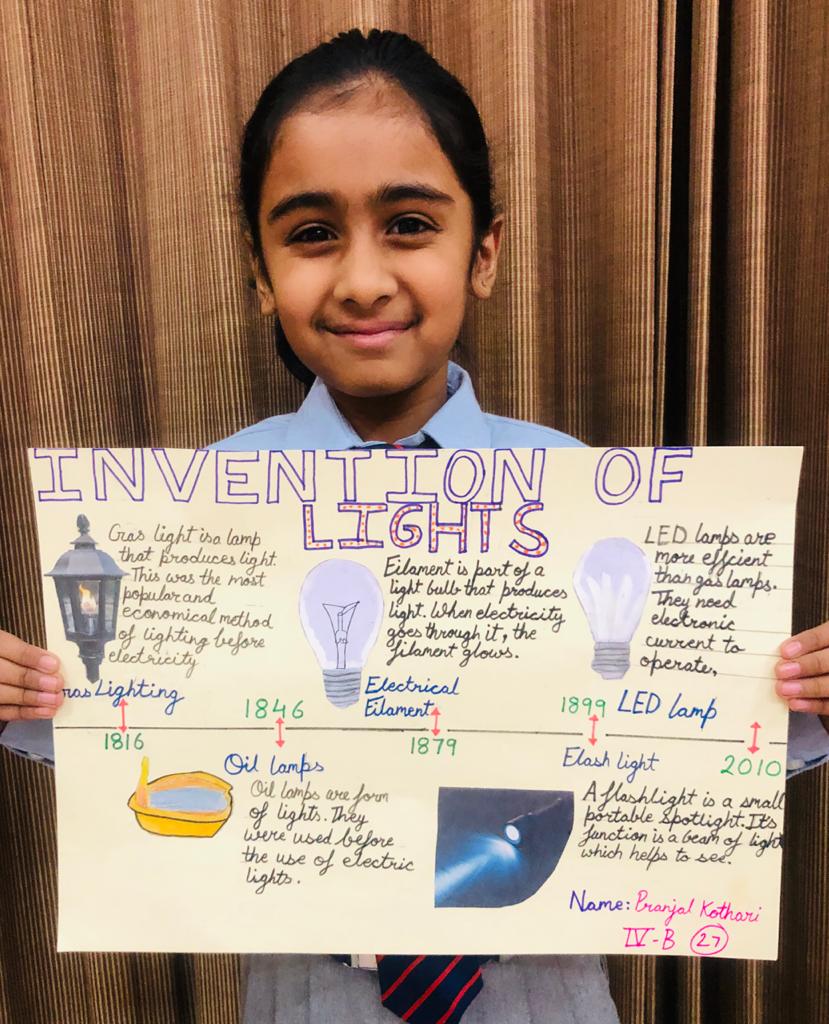 INVENTION OF
LIGHTS
Gas light is a lamp
that produces light.
This was the most
popular and
economical method
of lighting before
electricity
Gas Lighting
1816
1846
Oil lamps
Oil lamps are form
of lights. They
were used before
the use of electric
lights.
Filament is part of a
light bulb that produces
light. When electricity
goes through it, the
filament glows.
Electrical
Filament
1879
1899
Flash light
A flashlight is a small
portable spotlight. Its
function is a beam of light
which helps to see.
LED lamps are
more effcient
than gas lamps.
They need
electronic
current to
operate,
LED lamp
2010
Name: Pranjal Kothari
IV-B 27